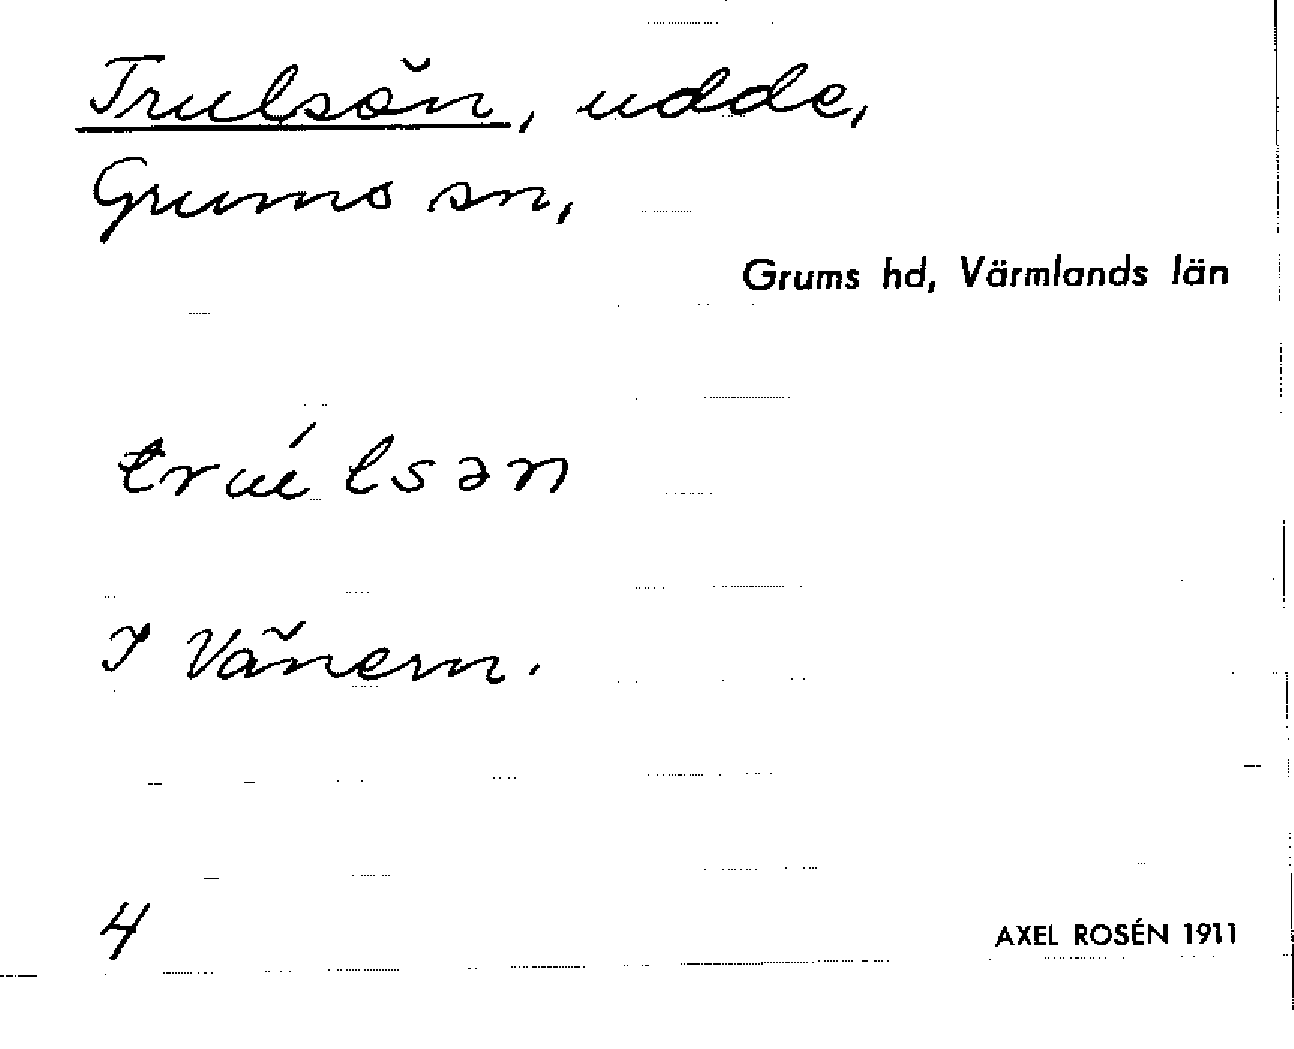 Trulsön, udde,
Grums sn,
Grums hd, Värmlands län
trúlsən
I Vänern.
4
AXEL ROSÉN 1911